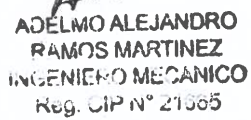 ADELMO ALEJANDRO
RAMOS MARTINEZ
INGENIERO MECANICO
Reg. CIP N° 21665